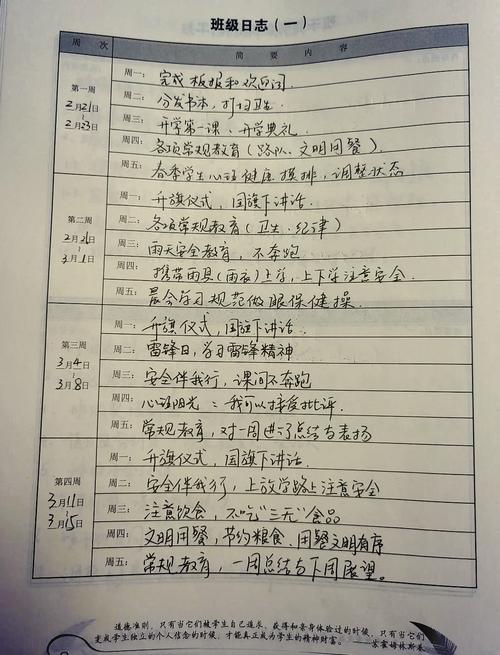 班级日志（一）
周 次 简 要 内 容
第一周
2月21日
~
2月23日
周一：完成板报和欢迎词.
周二：分发书本，打扫卫生.
周三：开学第一课、开学典礼.
周四：各项常规教育（路队、文明用餐）
周五：春季学生心理健康摸排，调整状态
第二周
2月26日
~
3月1日
周一：升旗仪式，国旗下讲话.
周二：各项常规教育（卫生、纪律）
周三：雨天安全教育，不奔跑
周四：携带雨具（雨衣）上学，上下学注意安全.
周五：晨会学习规范做眼保健操.
第三周
3月4日
~
3月8日
周一：升旗仪式，国旗下讲话.
周二：雷锋日，学习雷锋精神
周三：安全伴我行，课间不奔跑
周四：心理阳光：我可以接受批评.
周五：常规教育，对一周进行总结与表扬
第四周
3月11日
~
3月15日
周一：升旗仪式，国旗下讲话.
周二：安全伴我行，上放学路上注意安全
周三：注意饮食，不吃“三无”食品
周四：文明用餐，节约粮食.用餐文明有序
周五：常规教育，一周总结与下周展望。
道德准则，只有当它们被学生自己追求、获得和亲身体验过的时候，只有当它们
变成学生独立的个人信念的时候，才能真正成为学生的精神财富。 ——苏霍姆林斯基